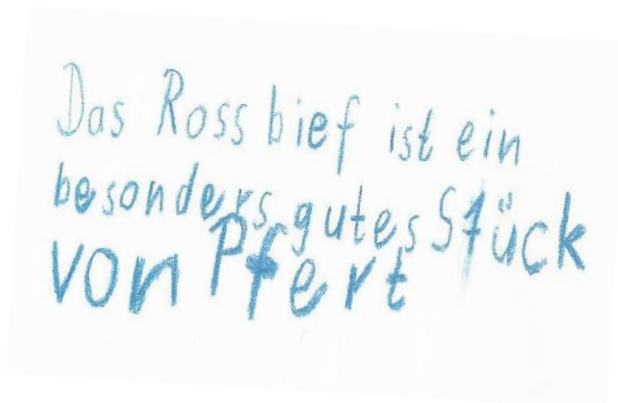 Das Rossbief ist ein
besonders gutes Stück
von Pfert